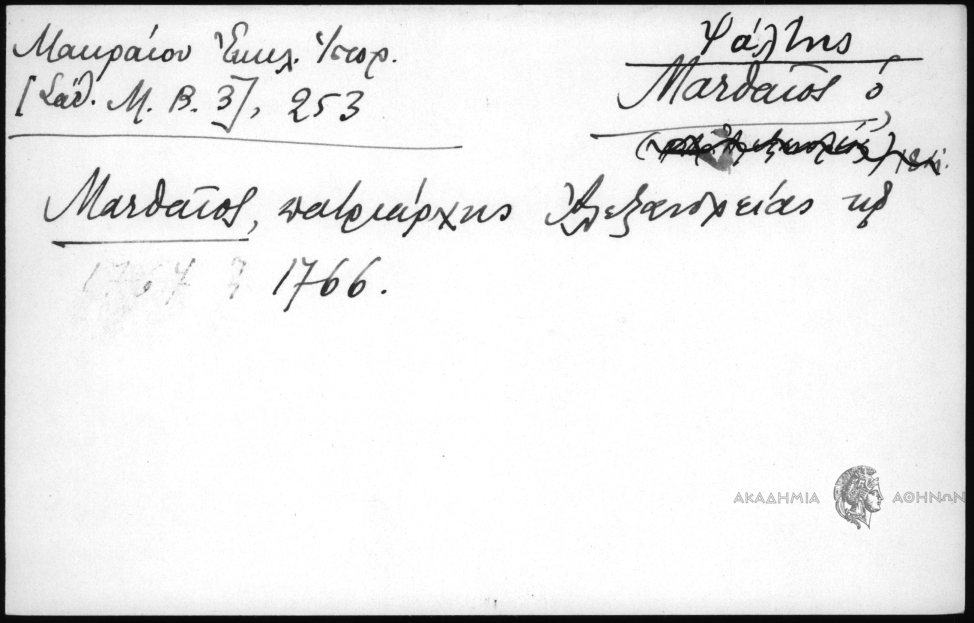 Μακραίου Ἐκκλ. Ἱστορ.
[Σάθ. Μ. Β. 3], 253
Ψάλτης
Ματθαῖος ὁ
Ματθαῖος, πατριάρχης Ἀλεξανδρείας
1766.
ΑΚΑΔΗΜΙΑ ΑΘΗΝΩΝ